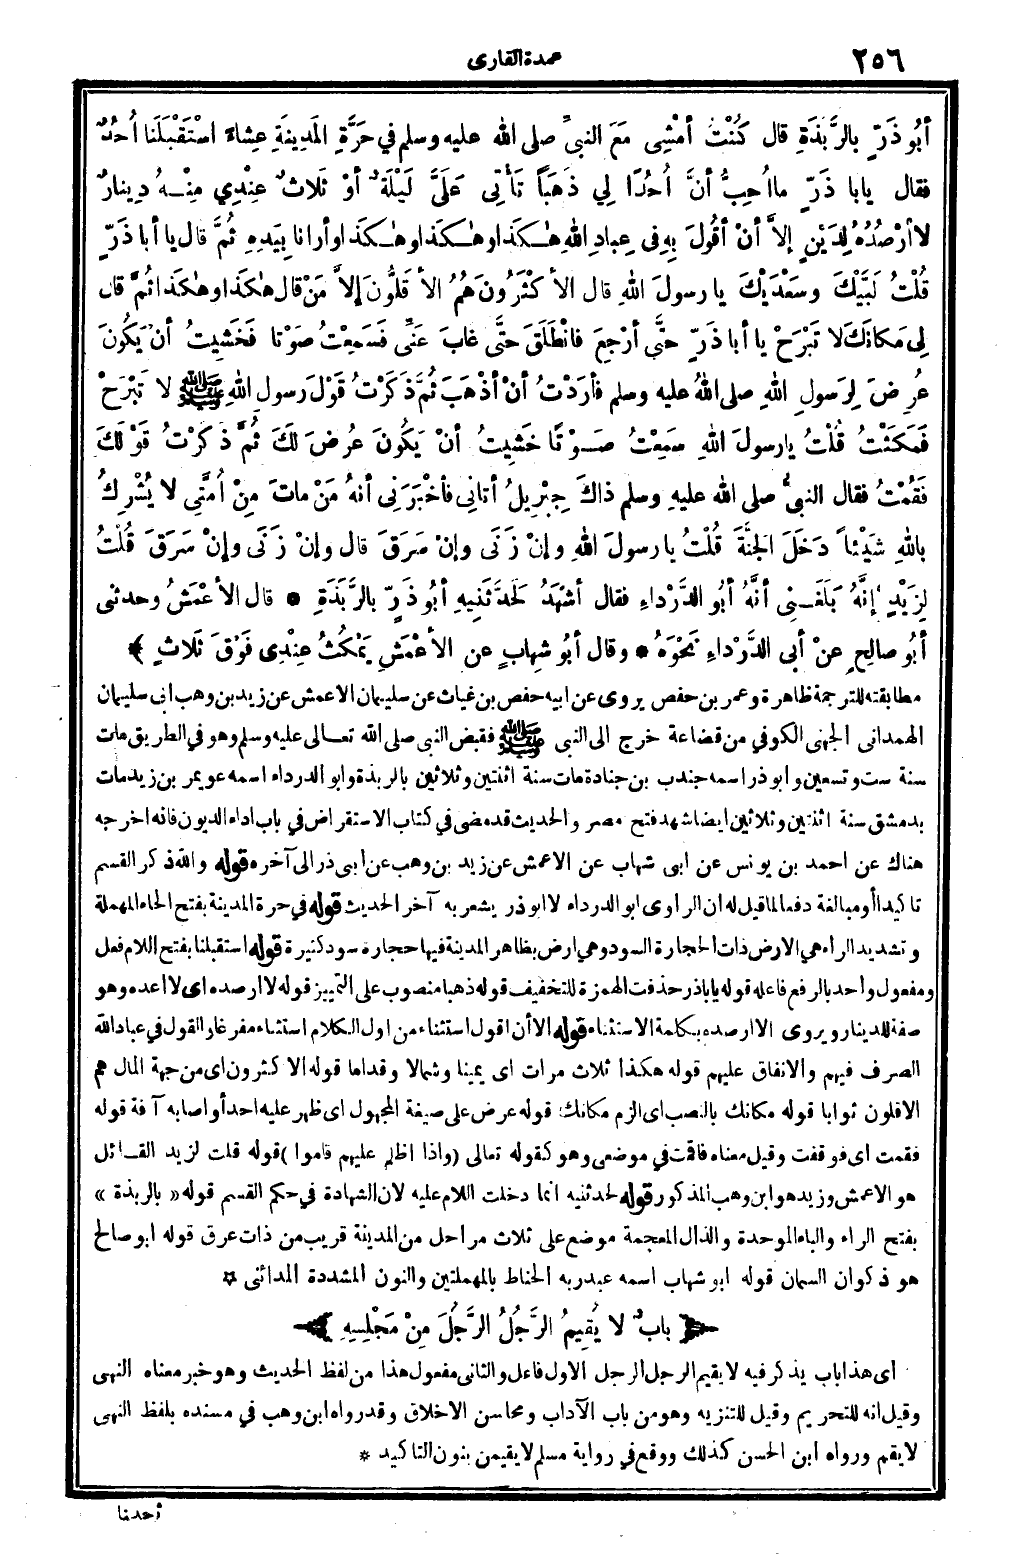 ٢٥٦
عمدة القارى
أبُو ذَرٍّ بالرَّبَذَةِ قال كُنْتُ أمْشِى مَعَ النبىِّ صلى الله عليه وسلم في حَرَّةِ المَدِينَةِ عِشاءً اسْتَقْبَلَنا أُحُدٌ
فقال يابا ذَرٍّ ماأُحِبُّ أنَّ أُحُدًا لِي ذَهَباً تَأْتى عَلَىَّ لَيْلَةٌ أوْ ثَلاثٌ عِنْدِي مِنْهُ دِينارٌ
لاأرْصُدُهُ لِدَيْنٍ إلاَّ أنْ أقُولَ بِهِ فى عِبادِ اللهِ هٰكَذَا وهٰكَذَا وهٰكَذَا وأرانا بِيَدِهِ ثُمَّ قال يا أبا ذَرٍّ
قُلْتُ لَبَّيْكَ وسَعْدَيْكَ يا رسولَ اللهِ قال الأكْثَرُونَ هُمُ الأقَلُّونَ إلاَّ مَنْ قال هٰكَذَا وهٰكَذَا ثُمَّ قال
لِى مَكانَكَ لا تَبْرَحْ يا أبا ذَرٍّ حتَّى أرْجِعَ فانْطَلَقَ حتَّى غابَ عَنِّى فَسَمِعْتُ صَوْتا فَخَشِيتُ أنْ يَكُونَ
عُرِضَ لِرَسولِ اللهِ صلى اللهُ عليه وسلم فأرَدْتُ أنْ أذْهَبَ ثُمَّ ذَكَرْتُ قَوْلَ رسولِ اللهِ ﷺ لا تَبْرَحْ
فَمَكَثْتُ قُلْتُ يارسولَ اللهِ سَمِعْتُ صَوْتًا خَشِيتُ أنْ يَكُونَ عُرِضَ لَكَ ثُمَّ ذَكَرْتُ قَوْلَكَ
فَقُمْتُ فقال النبىُّ صلى الله عليهِ وسلم ذاكَ جِبْرِيلُ أتانِى فأخْبَرَنِى أنهُ مَنْ ماتَ مِنْ أُمَّتِى لا يُشْرِكُ
باللهِ شَيْئاً دَخَلَ الجَنَّةَ قُلْتُ يا رسولَ اللهِ وإنْ زَنَى وإنْ سَرَقَ قال وإنْ زَنَى وإنْ سَرَقَ قُلْتُ
لِزَيْدٍ إنَّهُ بَلَغَنِى أنَّهُ أبُو الدَّرْداءِ فقال أشْهَدُ لَحَدَّثَنِيهِ أبُو ذَرٍّ بالرَّبَذَةِ * قال الأعْمَشُ وحدثنى
أبُو صالِحٍ عنْ أبى الدَّرْداءِ نَحْوَهُ * وقال أبُو شِهابٍ عن الأعْمَشِ يَمْكُثُ عِنْدِى فَوْقَ ثَلاثٍ ﴾
مطابقته للترجمة ظاهرة وعمر بن حفص يروى عن ابيه حفص بن غياث عن سليمان الاعمش عن زيد بن وهب ابى سليمان
الهمدانى الجهنى الكوفي من قضاعة خرج الى النبى ﷺ فقبض النبى صلى الله تعالى عليه وسلم وهو في الطريق مات
سنة ست وتسعين وابوذر اسمه جندب بن جنادة مات سنة اثنتين وثلاثين بالربذة وابو الدرداء اسمه عويمر بن زيد مات
بدمشق سنة اثنتين وثلاثين ايضا شهد فتح مصر والحديث قد مضى في كتاب الاستقراض في باب اداء الديون فانه اخرجه
هناك عن احمد بن يونس عن ابى شهاب عن الاعمش عن زيد بن وهب عن ابى ذر الى آخره قوله والله ذكر القسم
تاكيدا أو مبالغة دفعا لما قيل له ان الراوى ابو الدرداء لا ابو ذر يشعر به آخر الحديث قوله في حرة المدينة بفتح الحاء المهملة
وتشديد الراء هى الارض ذات الحجارة السود وهى ارض بظاهر المدينة فيها حجارة سود كثيرة قوله استقبلنا بفتح اللام فعل
ومفعول واحد بالرفع فاعله قوله ياباذر حذفت الهمزة للتخفيف قوله ذهبا منصوب على التمييز قوله لا ارصده اى لا اعده وهو
صفة للدينار ويروى الا ارصده بكلمة الاستثناء قوله الا أن اقول استثناء من اول الكلام استثناء مفرغا والقول في عباد الله
الصرف فيهم والانفاق عليهم قوله هكذا ثلاث مرات اى يمينا وشمالا وقداما قوله الاكثرون اى من جهة المال هم
الاقلون ثوابا قوله مكانك بالنصب اى الزم مكانك قوله عرض على صيغة المجهول اى ظهر عليه احد أو اصابه آفة قوله
فقمت اى فوقفت وقيل معناه فاقمت في موضعى وهو كقوله تعالى (واذا اظلم عليهم قاموا) قوله قلت لزيد القائل
هو الاعمش وزيد هو ابن وهب المذكور قوله لحدثنيه انما دخلت اللام عليه لان الشهادة في حكم القسم قوله «بالربذة»
بفتح الراء والباء الموحدة والذال المعجمة موضع على ثلاث مراحل من المدينة قريب من ذات عرق قوله ابو صالح
هو ذكوان السمان قوله ابو شهاب اسمه عبدربه الحناط بالمهملتين والنون المشددة المدائنى *
﴿ بابٌ لا يُقِيمُ الرَّجُلُ الرَّجُلَ مِنْ مَجْلِسِهِ ﴾
اى هذا باب يذكر فيه لا يقيم الرجل الرجل الاول فاعل والثانى مفعول هذا من لفظ الحديث وهو خبر معناه النهى
وقيل انه للتحريم وقيل للتنزيه وهو من باب الآداب ومحاسن الاخلاق وقد رواه ابن وهب في مسنده بلفظ النهى
لا يقم ورواه ابن الحسن كذلك ووقع في رواية مسلم لا يقيمن بنون التاكيد *
أحدنا